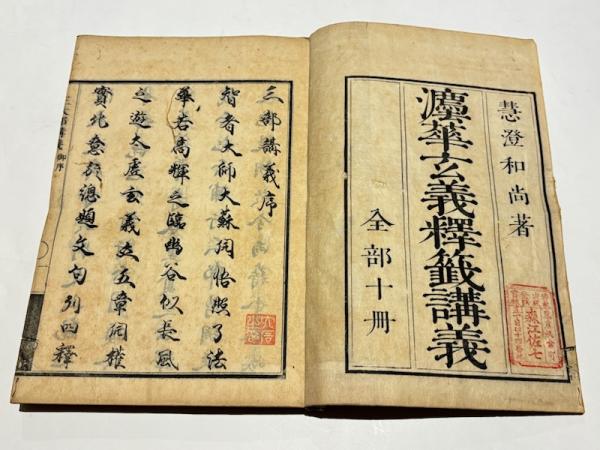 慧澄和尚著
灋華玄義釋籤講義
全部十冊
森江佐七
三部講義序
智者大師大蘇洞悟照了法
華若高輝之臨幽谷似長風
之遊大虛玄義立五章洞權
實此意總題文句列四釋
講義 御序